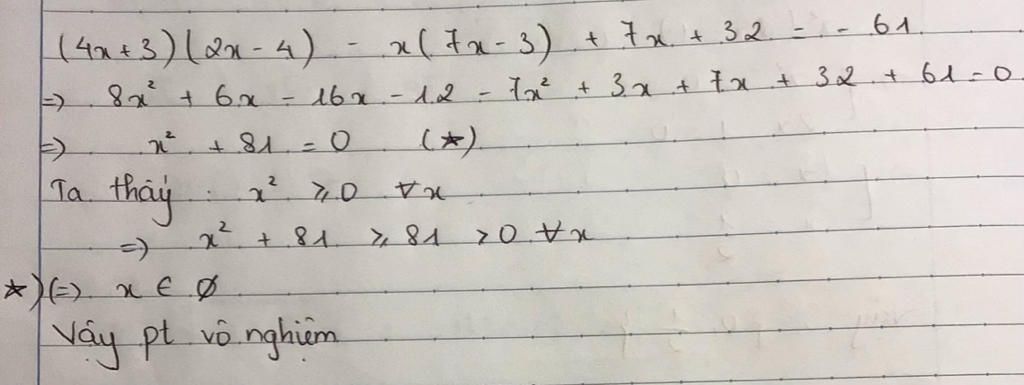 (4x+3)(2x-4) - x(7x-3) + 7x + 32 = -61
=> 8x² + 6x - 16x - 12 - 7x² + 3x + 7x + 32 + 61 = 0
=> x² + 81 = 0 (★)
Ta thấy : x² ≥ 0 ∀x
=> x² + 81 ≥ 81 > 0 ∀x
★) (=) x ∈ ∅
Vậy pt vô nghiệm